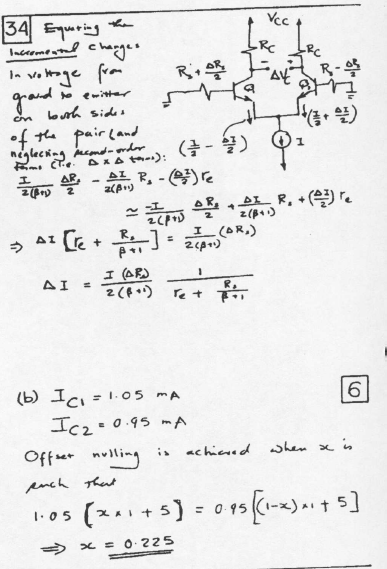 34 Equating the
incremental changes
in voltage from
ground to emitter
on both sides
of the pair (and
neglecting second-order
terms (i.e. Δ x Δ terms):
V_CC
R_C R_C
R_s + ΔR_s/2 - ΔV_c + R_s - ΔR_s/2
Q_1 Q_2
(I/2 - ΔI/2) (I/2 + ΔI/2)
I
I/2(β+1) ΔR_s/2 - ΔI/2(β+1) R_s - (ΔI/2) r_e
≃ -I/2(β+1) ΔR_s/2 + ΔI/2(β+1) R_s + (ΔI/2) r_e
⇒ ΔI [r_e + R_s/β+1] = I/2(β+1) (ΔR_s)
ΔI = I (ΔR_s)/2(β+1) 1/r_e + R_s/β+1
(b) I_C1 = 1.05 mA
6
I_C2 = 0.95 mA
Offset nulling is achieved when x is
such that
1.05 [x x 1 + 5] = 0.95 [(1-x) x 1 + 5]
⇒ x = 0.225